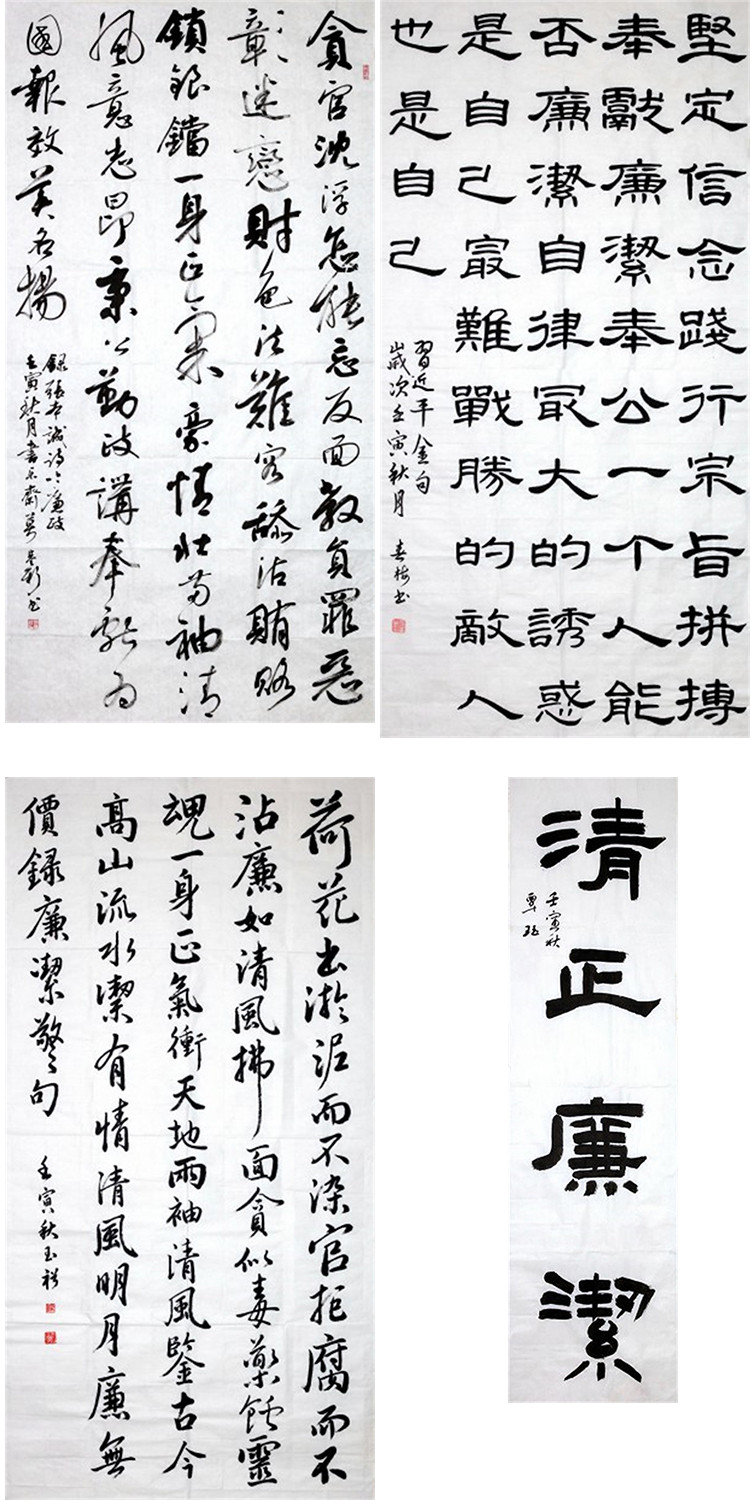 貪官沈浮怎能忘反面教員罪惡
彰彰迷戀財色法難容舔沾賄賂
鎖鋃鐺一身正氣豪情壯兩袖清
風意志昂秉公勤政講奉獻為
國報效美名揚
録張本誠詩廉政
壬寅秋月書樂齋萬書
堅定信念踐行宗旨拼搏
奉獻廉潔奉公一个人能
否廉潔自律冣大的誘惑
是自己㝡難戰勝的敵人
也是自己
習近平金句
歲次壬寅秋月 春梅书
荷花出淤泥而不染官拒腐而不
沾廉如清風拂面貪似毒藥蝕靈
魂一身正氣衝天地兩袖清風鑒古今
高山流水潔有情清風明月廉無
價録廉潔警句
壬寅秋玉裕
清正廉潔
壬寅秋